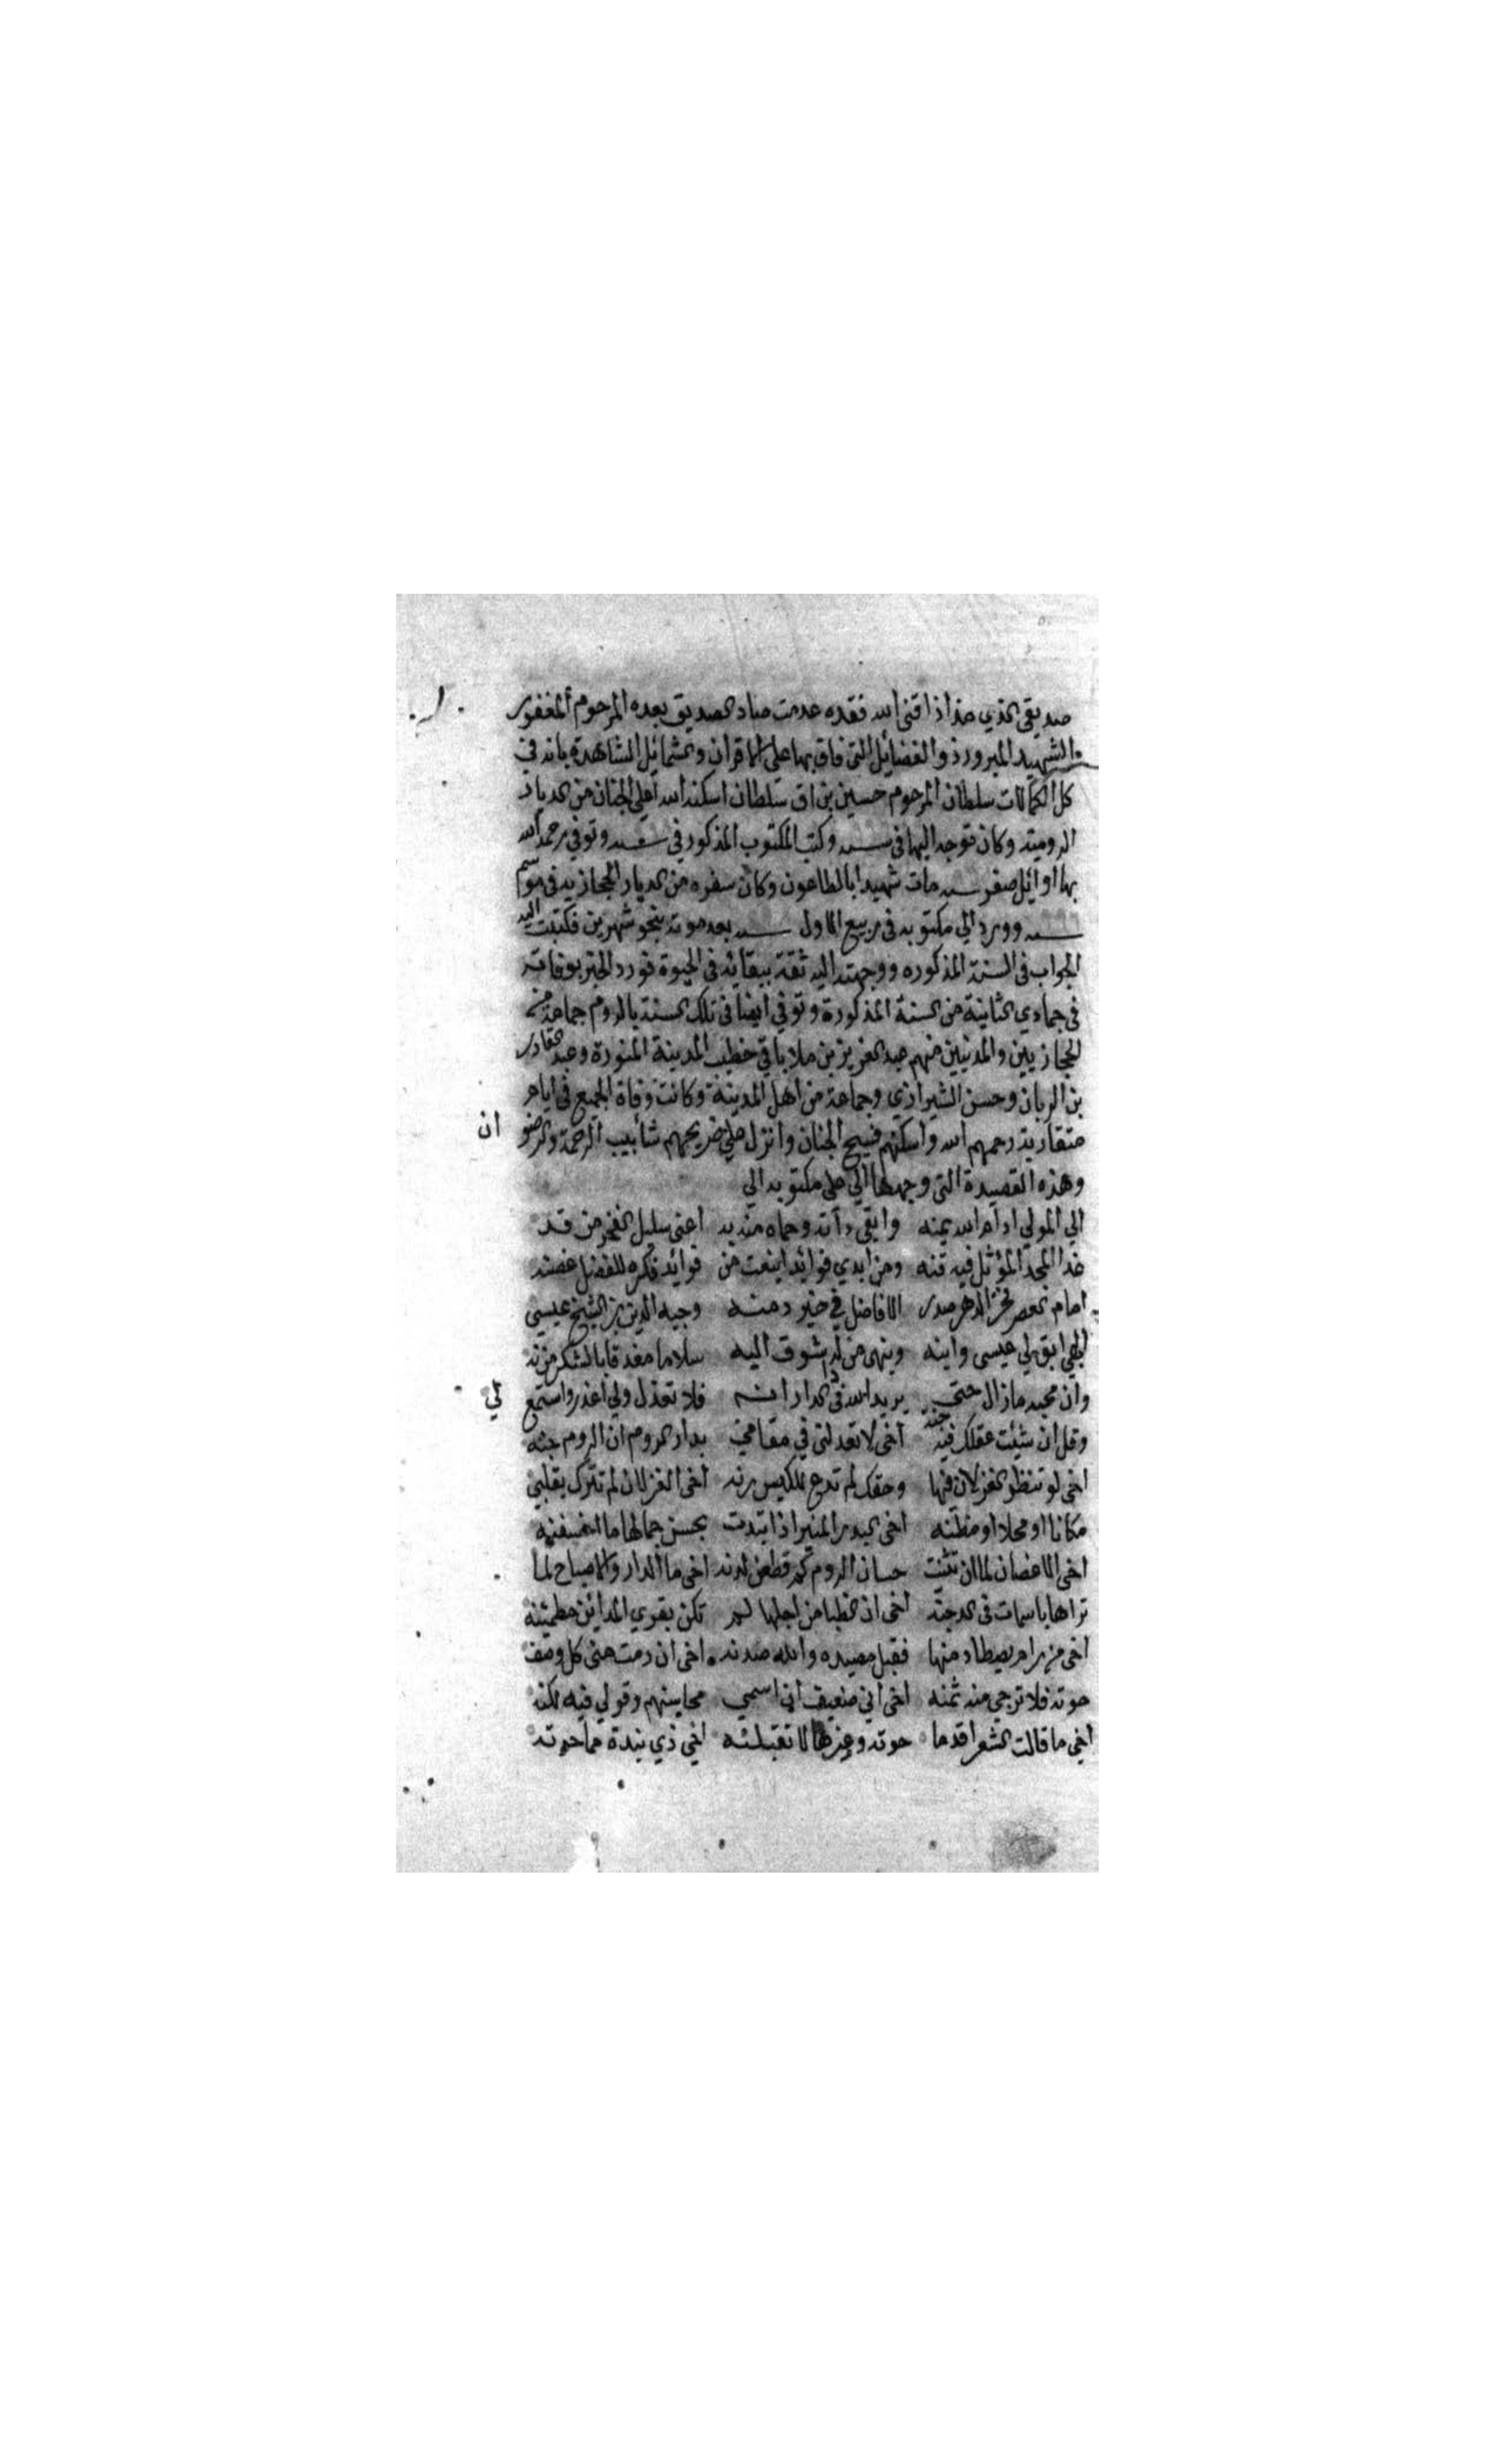 صديقي الذي مذ اذاقني الله فقده عدمت صاد الصديق بعده المرحوم المغفور
والشهيد المبرور ذو الفضايل التي فاق بها على الاقران والشمائل الشاهدة بانه في
كل الكمالات سلطان المرحوم حسين بن اق سلطان اسكنه الله اعلى الجنان من الديار
الروميه وكان توجه اليها في سنه وكتب المكتوب المذكور في سنه وتوفي رحمه الله
بها اوائل صفر سنه مات شهيدا بالطاعون وكان سفره من الديار الحجازيه في موسم
سنه وورد الي مكتوبه في ربيع الاول سنه بعد موته بنحو شهرين فكتبت اليه
الجواب في السنة المذكوره ووجهته اليه ثقة ببقائه في الحيوة فورد الخبر بوفاته
في جمادي الثانية من السنة المذكورة وتوفي ايضا في تلك السنة بالروم جماعة من
الحجازيين والمدنيين منهم عبد العزيز بن ملا باقي خطيب المدينة المنورة وعبد القادر
بن الربان وحسن الشيرازي وجماعة من اهل المدينة وكانت وفاة الجميع في ايام
متقاربة رحمهم الله واسكنهم فسيح الجنان وانزل على ضريحهم شأبيب الرحمة والرضوان
وهذه القصيدة التي وجهها الي على مكتوبه الي
الي المولي ادام الله يمنه وابقى ذاته وحماه منه به اعني سليل الفخر من قد
غدا المجد المؤثل فيه قنه ومن ابدي فوائد اينعت من فوائد فكره للفضل غصنه
امام العصر فخر الدهر صدر الافاضل في خير دمنه وجيه الدين بن الشيخ عيسى
الهي ابق لي عيسى وابنه وينهى من لدا شوق اليه سلاما مغدقا بالشكر مزنه
وان محبه ما زال حتى يريد الله في الدار انه فلا تعذل ولي اعذر واستمع لي
وقل ان شئت عقلك فيه جنة اخي لا تعذلني في مقامي بدار الروم ان الروم جنه
اخي لو تنظر الغزلان فيها وحقك لم تدع للكيس رنه اخي الغزلان لم تترك بقلبي
مكانا او محلا او مظنه اخي البدر المنير اذا تبدت بحسن جمالها ما انخسفنه
اخي الاغصان لما ان تثنت حسان الروم كم قطعن لدنه اخي ما الدار والاصباح لما
تراها باسمات في الدجنة اخي ان الظبا من اجلها لم تكن بقوي المدائن مطمئنة
اخي من رام يصطاد منها فقبل مصيده والله صدنه اخي ان رمت مني كل وصف
حوته فلا ترجي منه ثمنه اخي اني ضعيف ان اسمي محاسنهم وقولي فيه لكنه
اخي ما قالت الشعرا قدما حوته وغيرها لا تقبلنه اخي ذي نبذة مما حوته